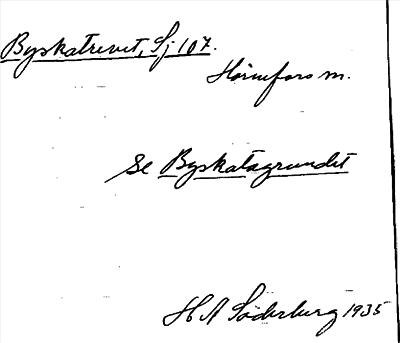 Byskatrevet, Sj 107.
Hörnefors m.
se Byskatagrundet
H A Söderburg 1935